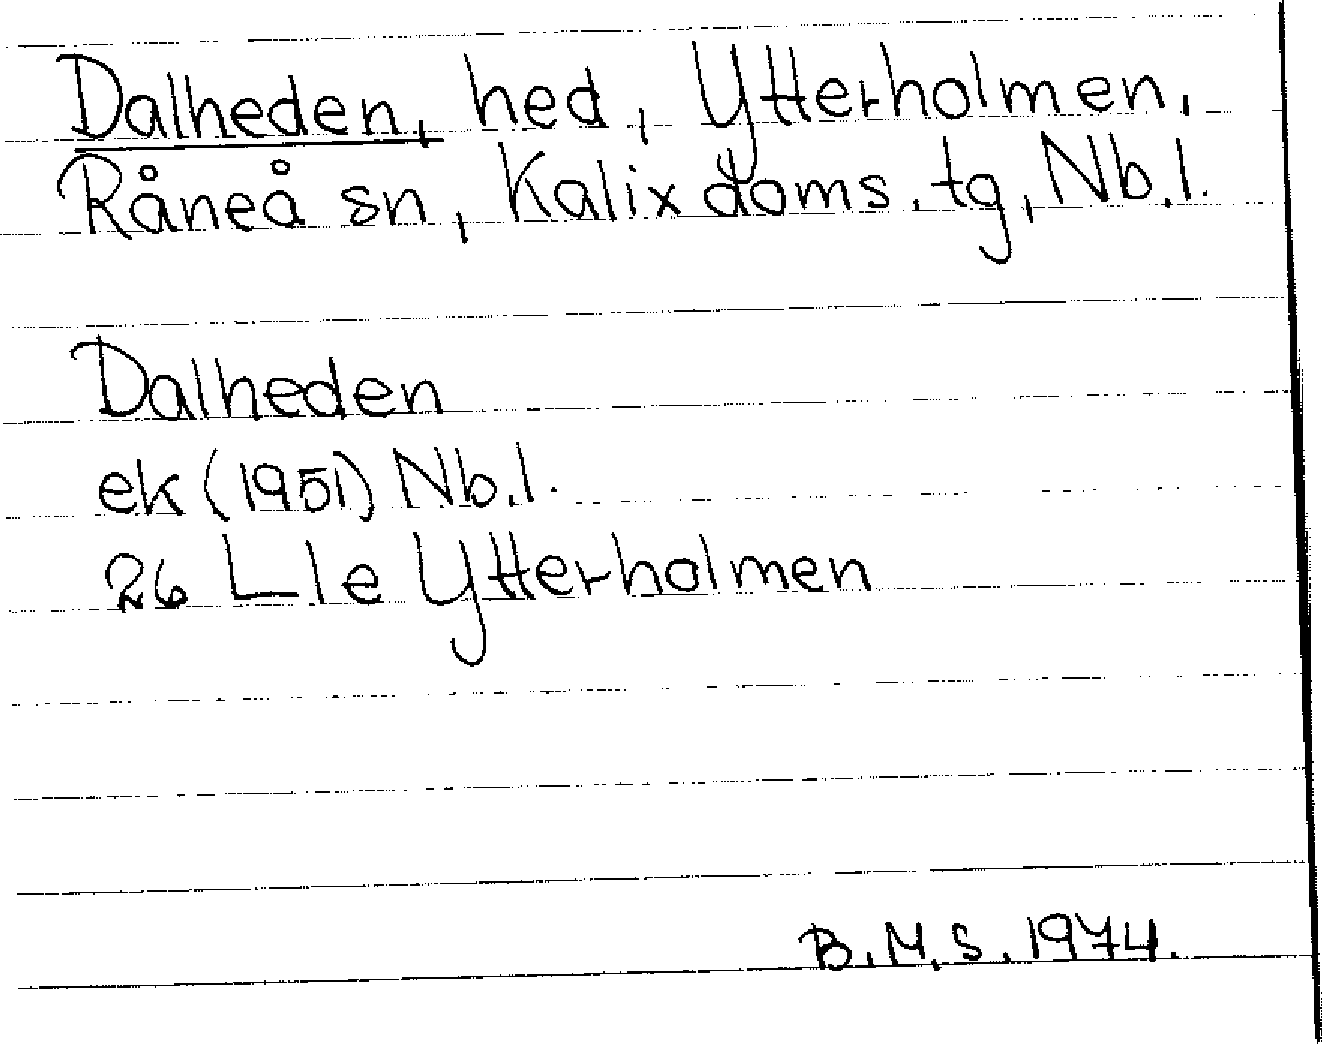 Dalheden, hed, Ytterholmen,
Råneå sn, Kalix doms. tg, Nb.l.
Dalheden
ek (1951) Nb.l.
26 L 1e Ytterholmen
B.M.S. 1974.